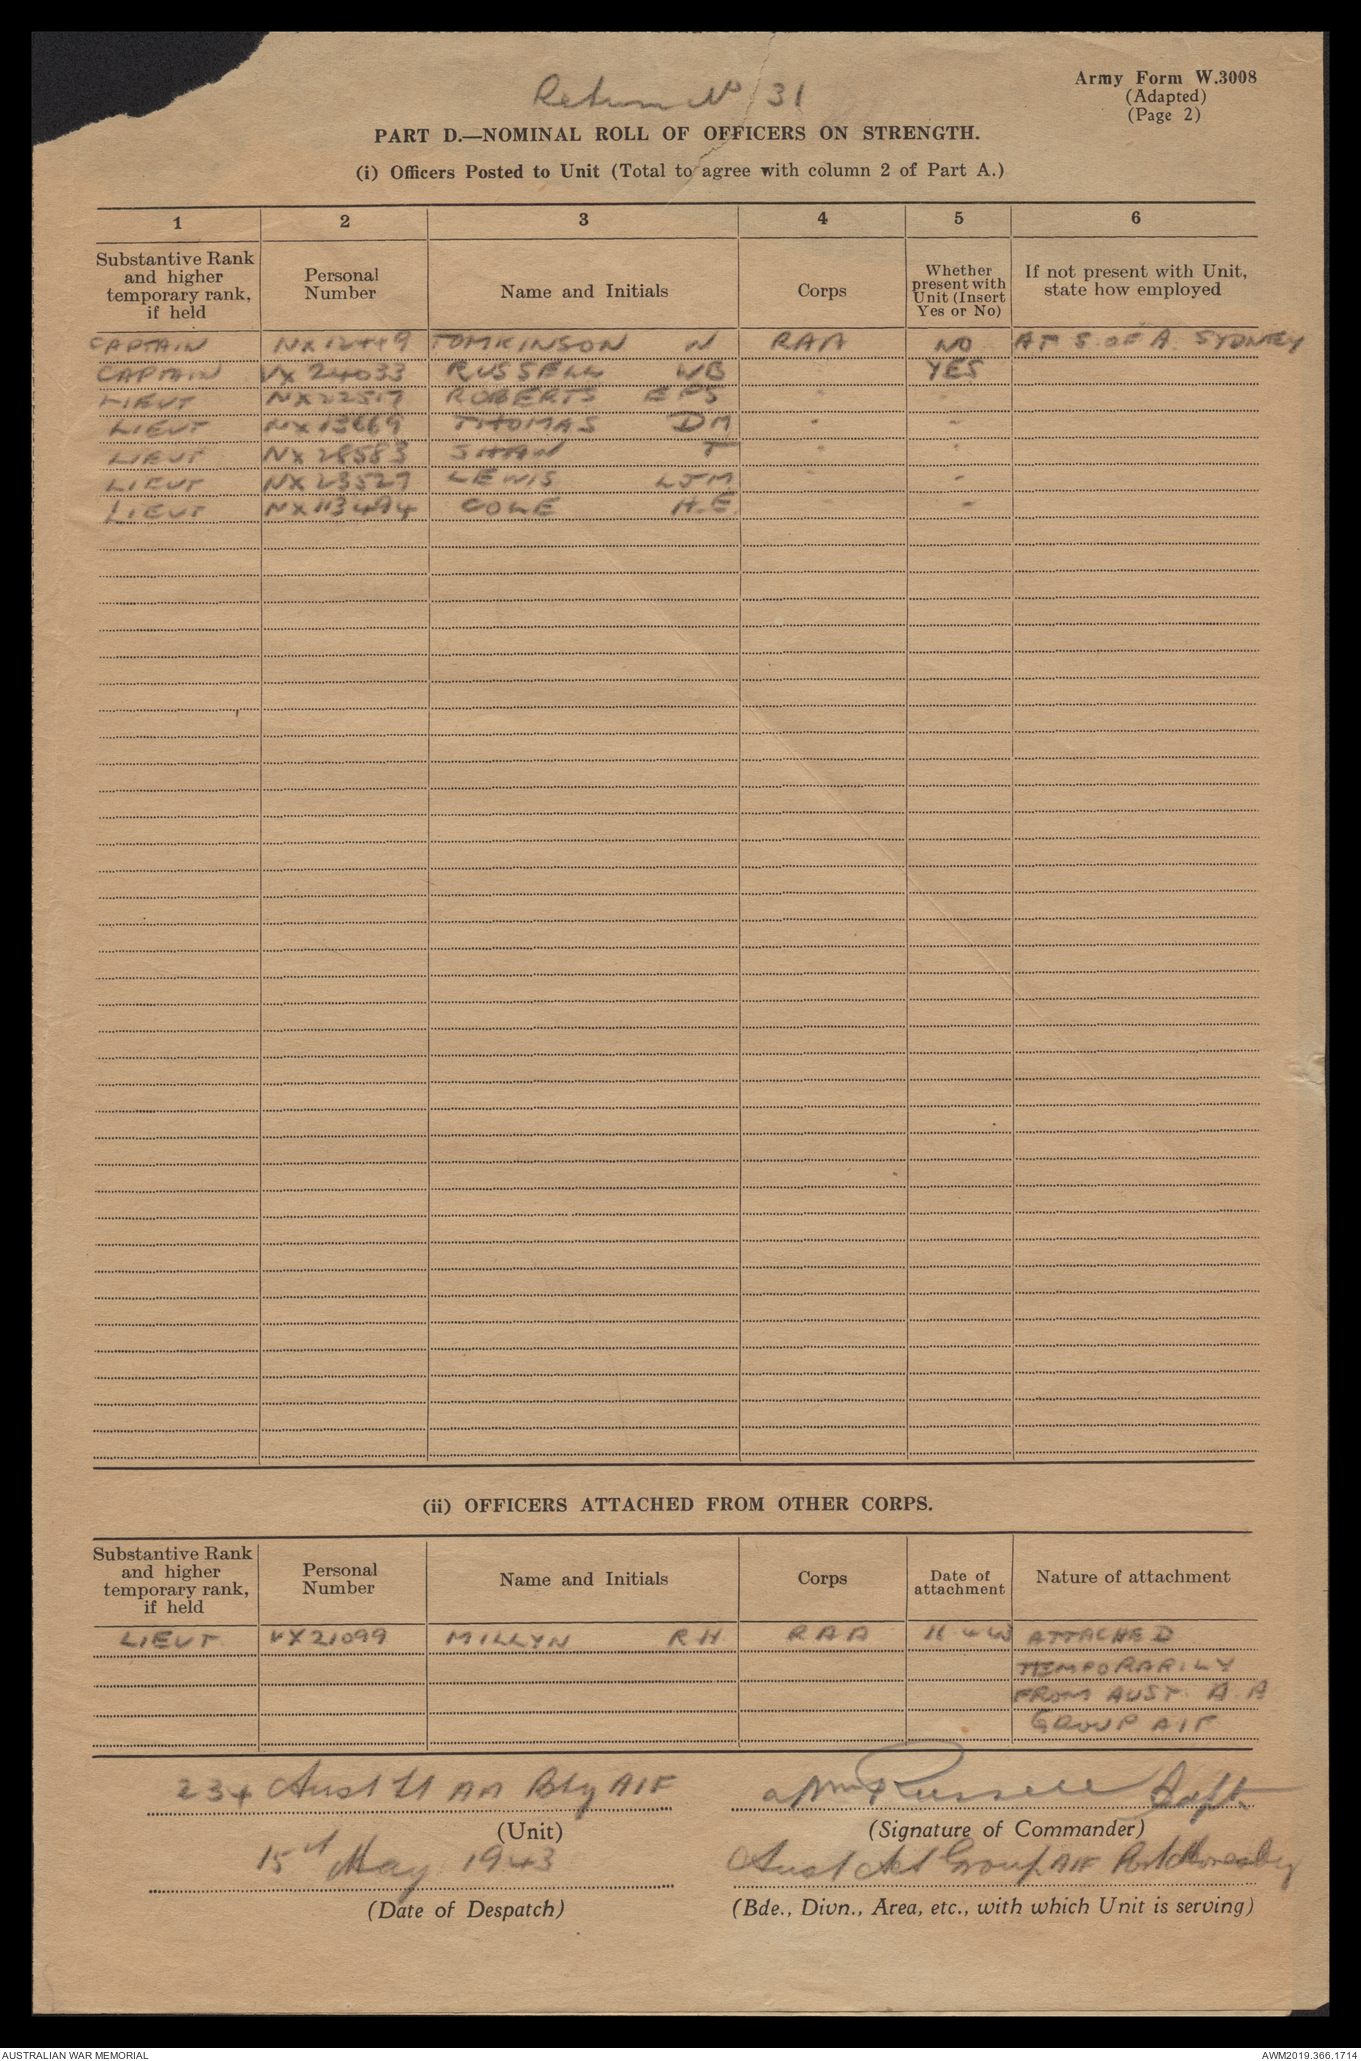 Return No 31
Army Form W.3008
(Adapted)
(Page 2)
PART D.—NOMINAL ROLL OF OFFICERS ON STRENGTH.
(i) Officers Posted to Unit (Total to agree with column 2 of Part A.)
1 2 3 4 5 6
Substantive Rank and higher temporary rank, if held
Personal Number
Name and Initials
Corps
Whether present with Unit (Insert Yes or No)
If not present with Unit, state how employed
CAPTAIN NX12449 TOMKINSON N RAA NO AT S OF A SYDNEY
CAPTAIN VX 24033 RUSSELL WB " YES
LIEUT NX22517 ROBERTS EFS " "
LIEUT NX13669 THOMAS DM " "
LIEUT NX 28583 SHAW T " "
LIEUT NX23527 LEWIS LJM " "
LIEUT NX113494 COLE H.E. " "
(ii) OFFICERS ATTACHED FROM OTHER CORPS.
Substantive Rank and higher temporary rank, if held
Personal Number
Name and Initials
Corps
Date of attachment
Nature of attachment
LIEUT VX21099 MILLYN RH RAA 11 4 43 ATTACHED
TEMPORARILY
FROM AUST. A A
GROUP AIF
234 Aust Lt AA Bty AIF
Russell Capt
(Unit)
(Signature of Commander)
15th May 1943
Aust AA Group AIF Port Moresby
(Date of Despatch)
(Bde., Divn., Area, etc., with which Unit is serving)
AUSTRALIAN WAR MEMORIAL
AWM2019.366.1714